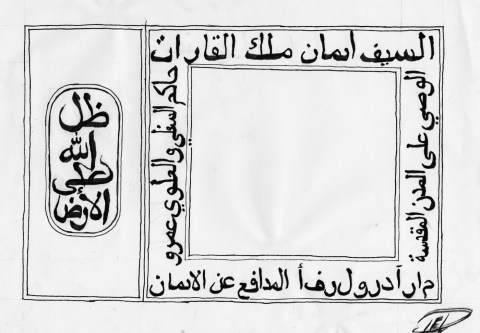 السيف ايمان ملك القارات
الوصي على المدن المقدسة
حاكم السفلي والعلوي عمرو
المدافع عن الايمان
ظل
الله
على
الأرض